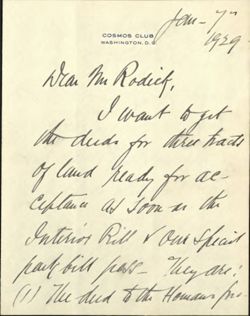 Jan - 7th
1929
COSMOS CLUB
WASHINGTON, D.C.
Dear Mr Rodick,
I want to get
the deeds for three tracts
of land ready for ac-
ceptance as soon as the
Interior Bill & our special
park bill pass - They are:
(1) The deed to the Homans pro-